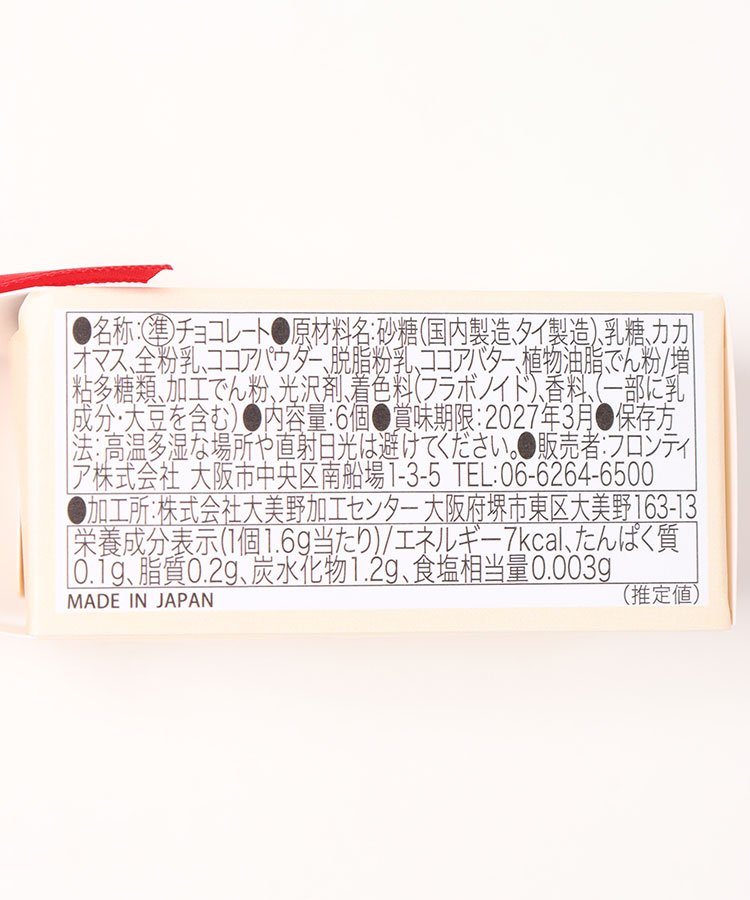 ●名称:㊜チョコレート●原材料名:砂糖(国内製造、タイ製造)、乳糖、カカ
オマス、全粉乳、ココアパウダー、脱脂粉乳、ココアバター、植物油脂、でん粉/増
粘多糖類、加工でん粉、光沢剤、着色料(フラボノイド)、香料、(一部に乳
成分・大豆を含む)●内容量:6個●賞味期限:2027年3月●保存方
法:高温多湿な場所や直射日光は避けてください。●販売者:フロンティ
ア株式会社 大阪市中央区南船場1-3-5 TEL:06-6264-6500
●加工所:株式会社大美野加工センター 大阪府堺市東区大美野163-13
栄養成分表示(1個1.6g当たり)/エネルギー7kcal、たんぱく質
0.1g、脂質0.2g、炭水化物1.2g、食塩相当量0.003g
MADE IN JAPAN
(推定値)